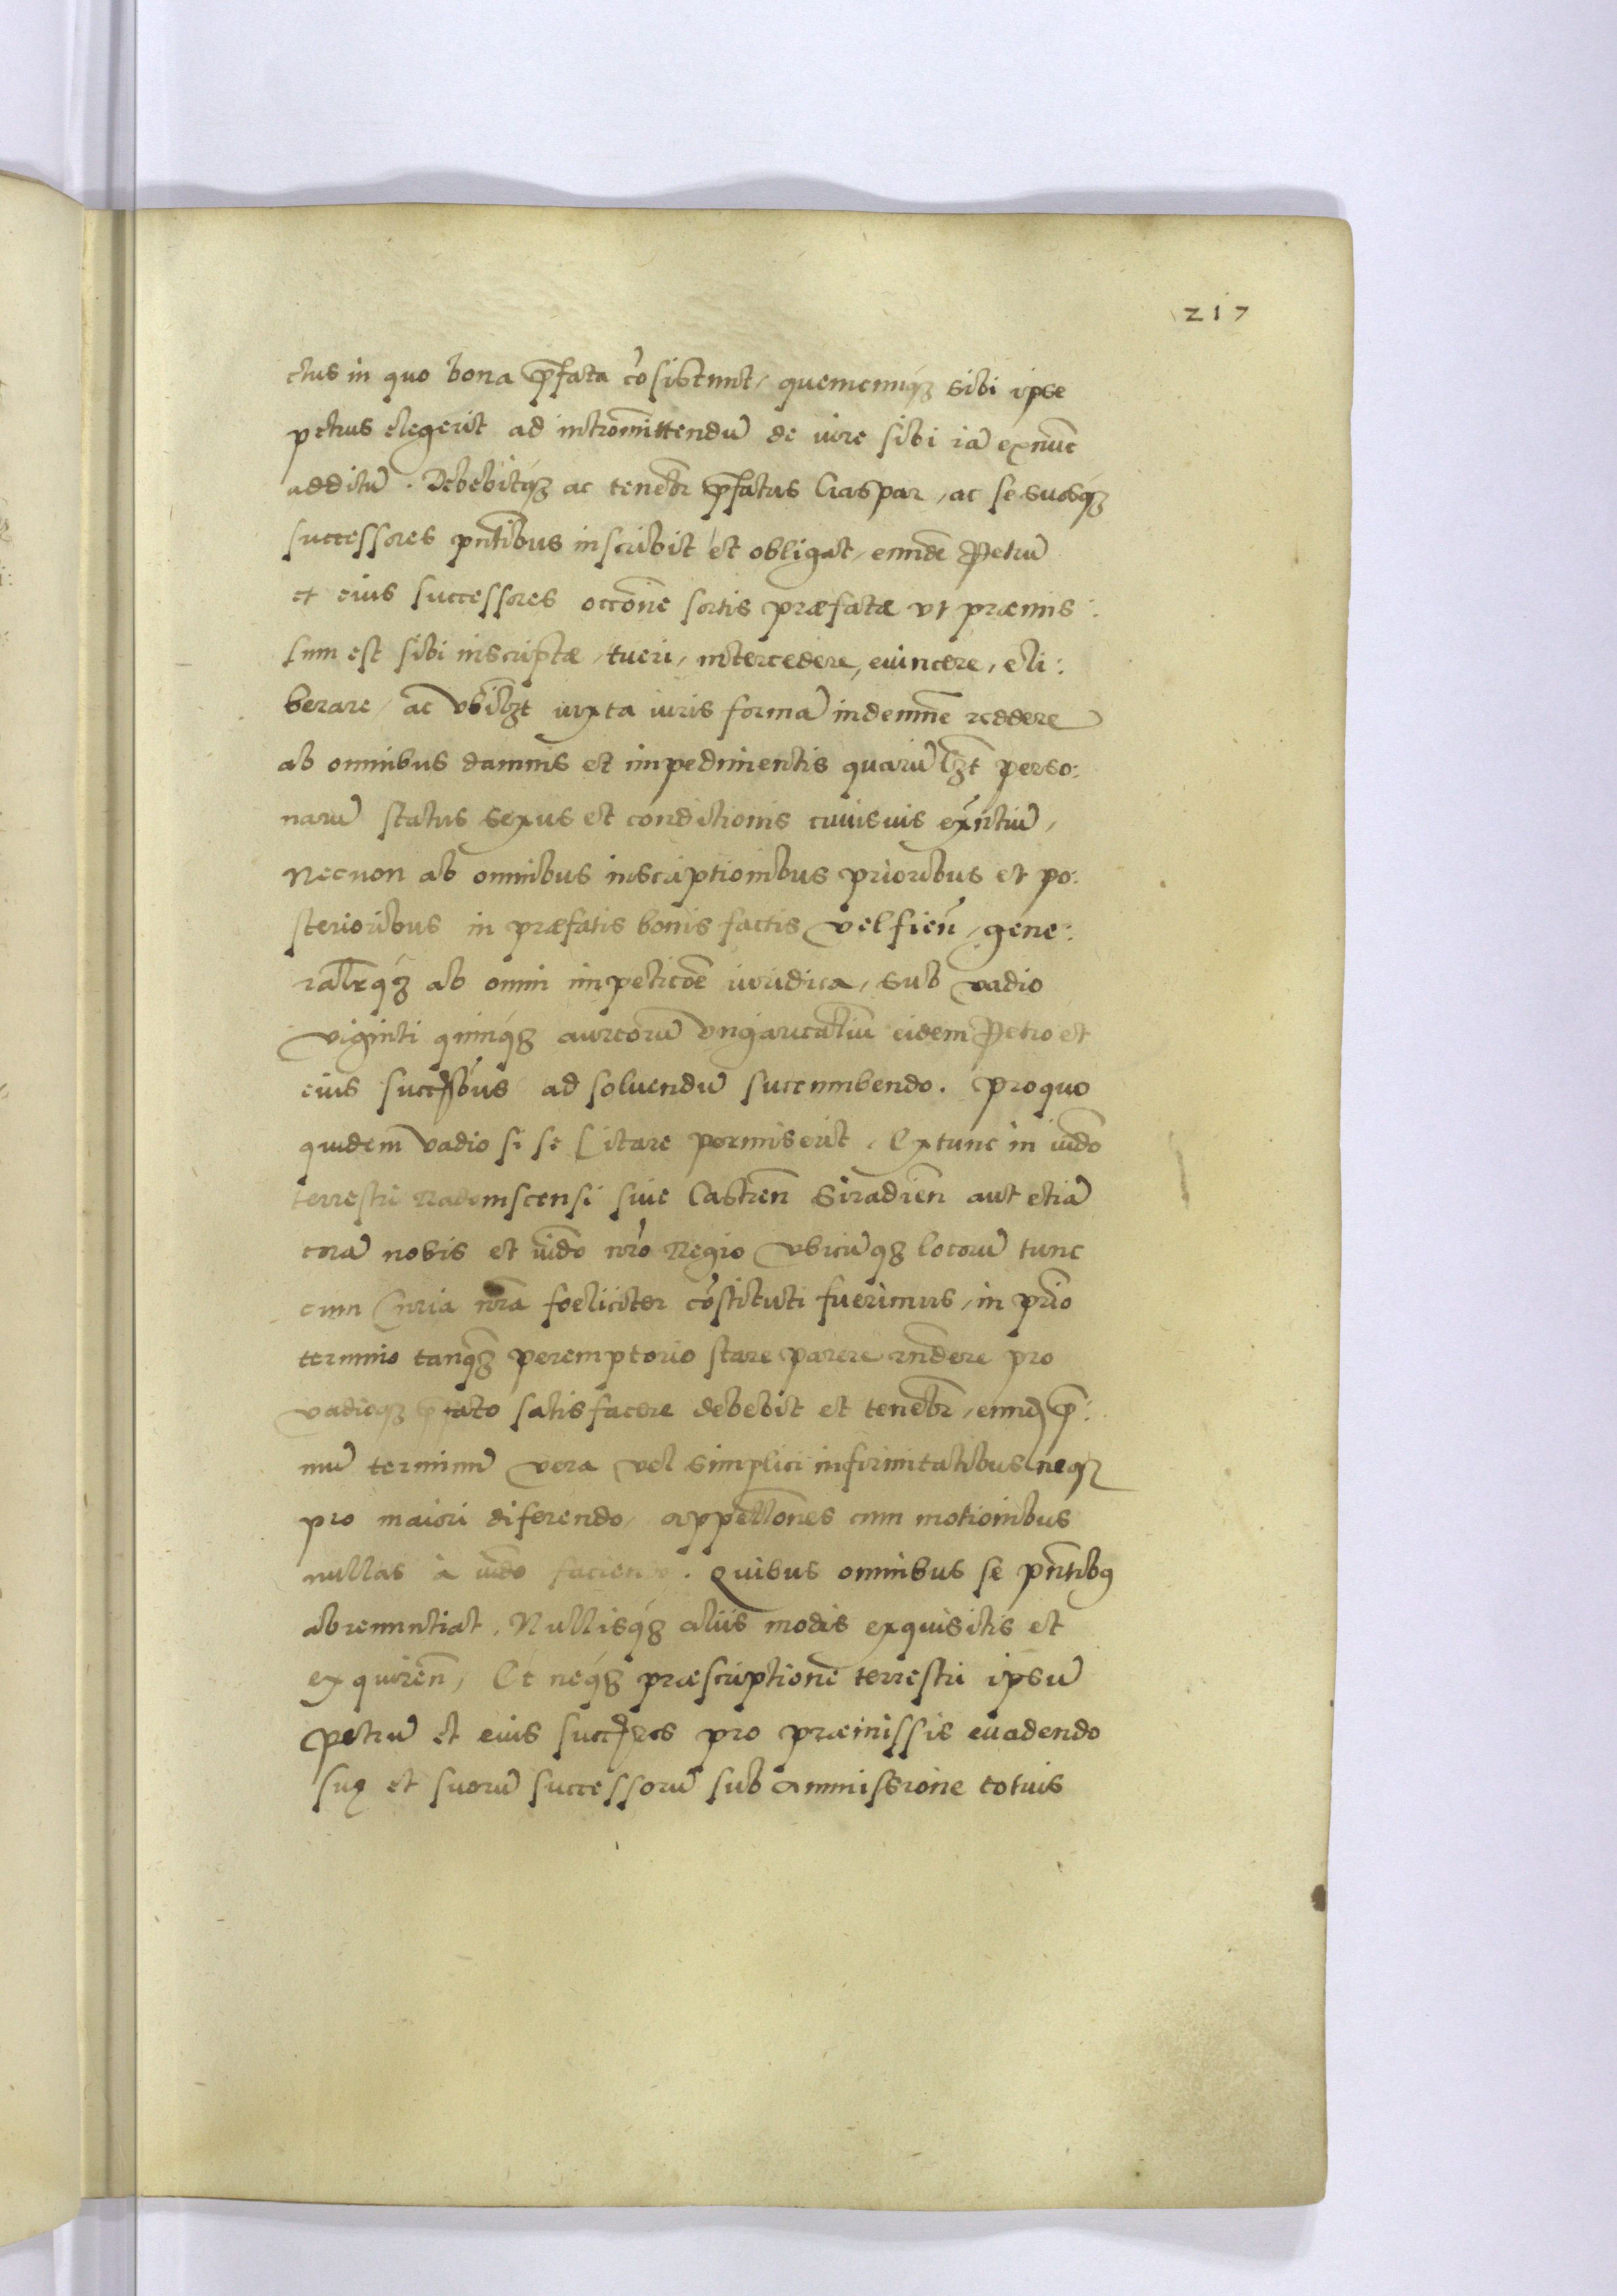 217
ctus in quo bona p̃fata cõsistunt, quemcunq3 sibi ipse
petrus elegerit ad intromittendũ de iure sibi iã exnũc
additũ. Debebitq3 ac teneb̃r p̃fatus Gaspar, ac se suosq3
successores pñtibus inscribit et obligat, eund̃e Petrũ
et eius successores occõne sortis præfatæ vt præmis:
sum est sibi inscriptæ, tueri, intercedere, euincere, eli:
berare, ac vbil3t iuxta iuris formã indemñe reddere
ab omnibus damnis et impedimentis quarũl3t perso:
narũ status sexus et conditionis cuiusuis exñtiũ,
Necnon ab omnibus inscriptionibus prioribus et po:
sterioribus in præfatis bonis factis vel fieñ, gene:
ralr̃q3 ab omni impeticõe iuridica, sub vadio
viginti quinq3 aureorũ vngaricaliũ eidem Petro et
eius succ̃ssõbus ad soluendũ succumbendo. Pro quo
quidem vadio si se Citare permiserit, Extunc in iud̃o
terrestri Radomscensi siue Castreñ Siradieñ aut etiã
corã nobis et iud̃o nr̃o Regio vbicũq3 locorũ tunc
cum Curia nr̃a foeliciter cõstituti fuerimus, in pr̃io
termino tanq̃3 peremptorio stare parere rñdere pro
vadioq3 p̃fato satisfacere debebit et teneb̃r, eund̃ p̃:
mũ terminũ vera vel simplici infirmitatibus neq3
pro maiori diferendo, appell̃ones cum motionibus
nullas à iud̃o faciendo. Quibus omnibus se pñtibq
abrenuntiat. Nullisq3 aliis modis exquisitis et
exquireñ, Et neq3 præscriptione terrestri ipsũ
Petrũ et eius succ̃res pro præmissis euadendo
suę et suorũ successorũ sub ammissione totius